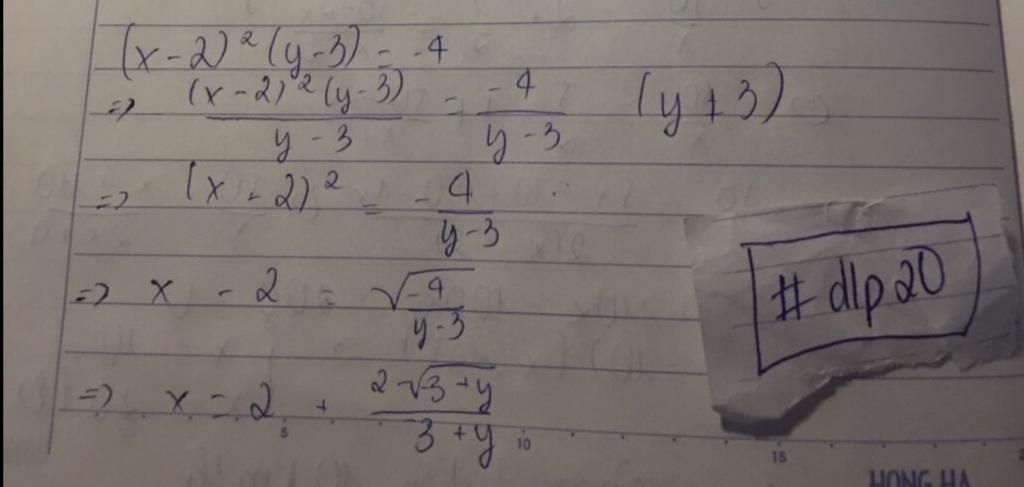 (x-2)²(y-3) = -4
=> \frac{(x-2)²(y-3)}{y-3} = \frac{-4}{y-3} (y+3)
=> (x-2)² = -\frac{4}{y-3}
=> x - 2 = \sqrt{\frac{-4}{y-3}}
=> x = 2 + \frac{2\sqrt{3+y}}{3+y}
# dlp20
5 10 15
HONG HA